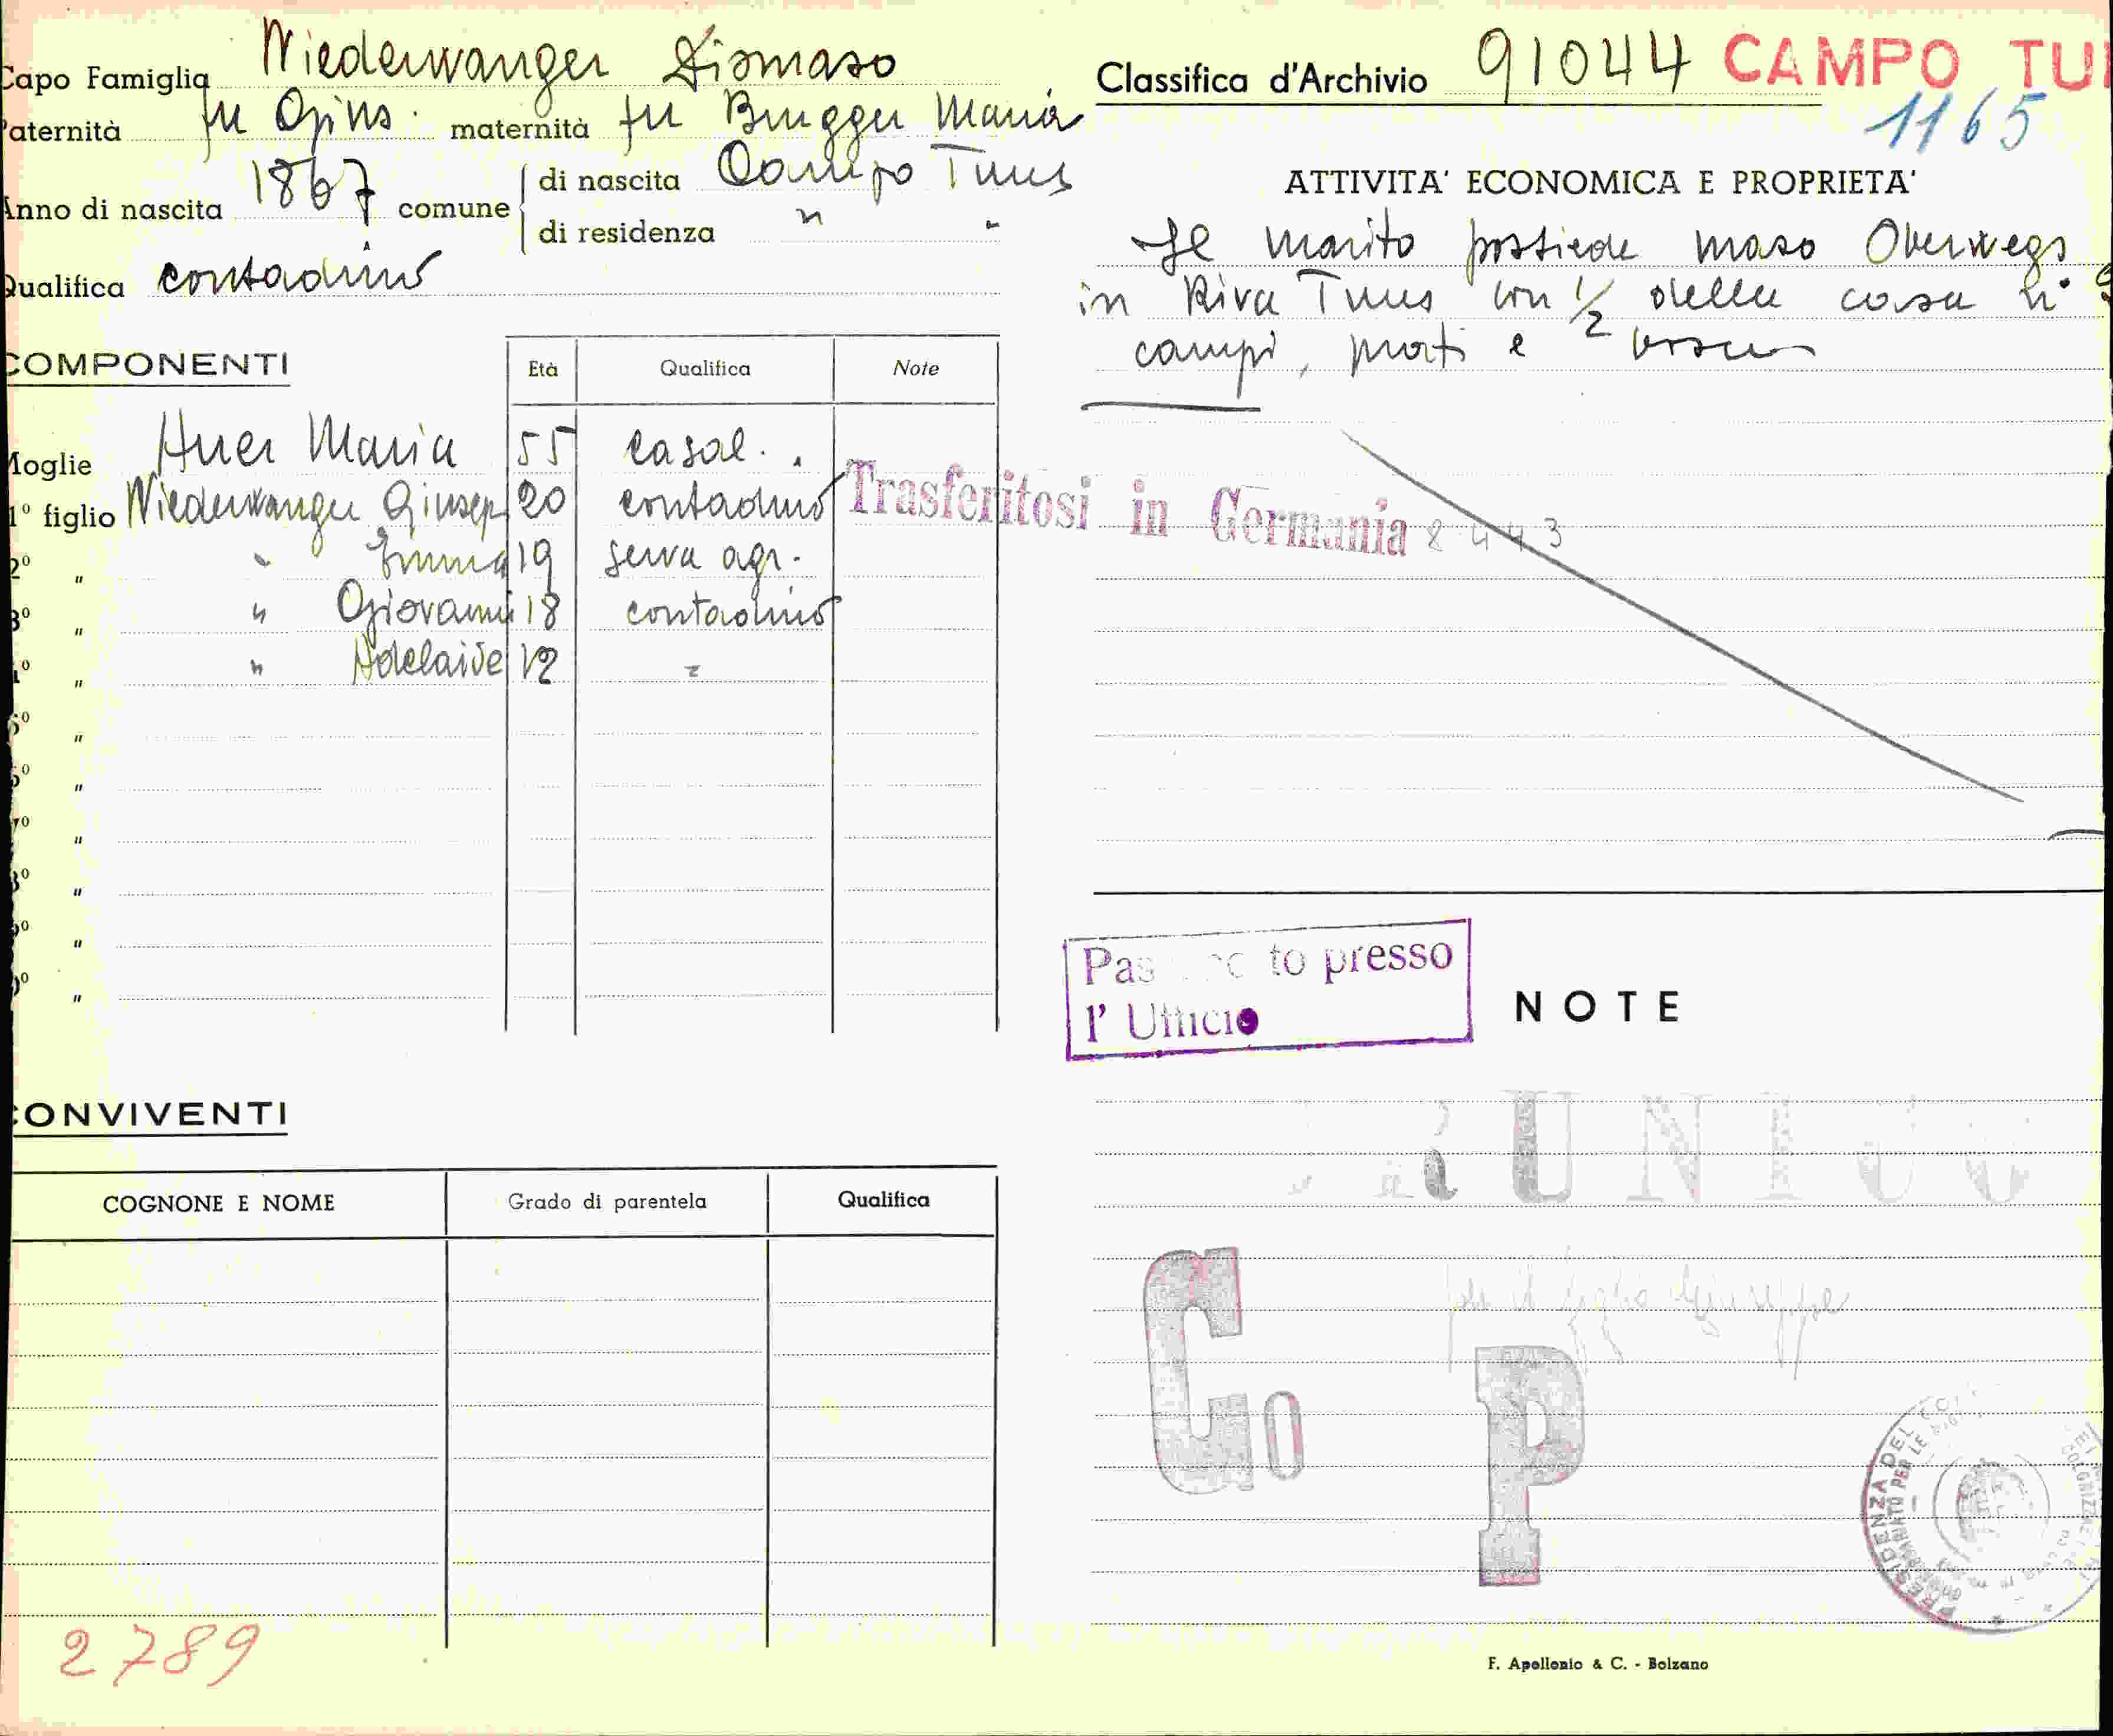 Capo Famiglia Niederwanger Dismaso
aternità fu Gius. maternità fu Brugger Maria
Anno di nascita 1867 comune di nascita Campo Tures
di residenza " "
Qualifica contadino
Classifica d'Archivio 91044 CAMPO TU
1165
ATTIVITA' ECONOMICA E PROPRIETA'
Il marito possiede maso Oberwegs
in Riva Tures con 1/2 della casa n°
campi, prati e bosco
COMPONENTI Età Qualifica Note
Moglie Auer Maria 55 casal.
1° figlio Niederwanger Giusep 20 contadino
Trasferitosi in Germania 8443
2° " " Emma 19 serva agr.
3° " " Giovanni 18 contadino
4° " " Adelaide 12 -
5° "
6° "
7° "
8° "
9° "
0° "
to presso
l' Ufficio
NOTE
CONVIVENTI
COGNONE E NOME Grado di parentela Qualifica
BRUNICO
Co P
per il figlio Giuseppe
PRESIDENZA DEL
2789
F. Apollonio & C. - Bolzano